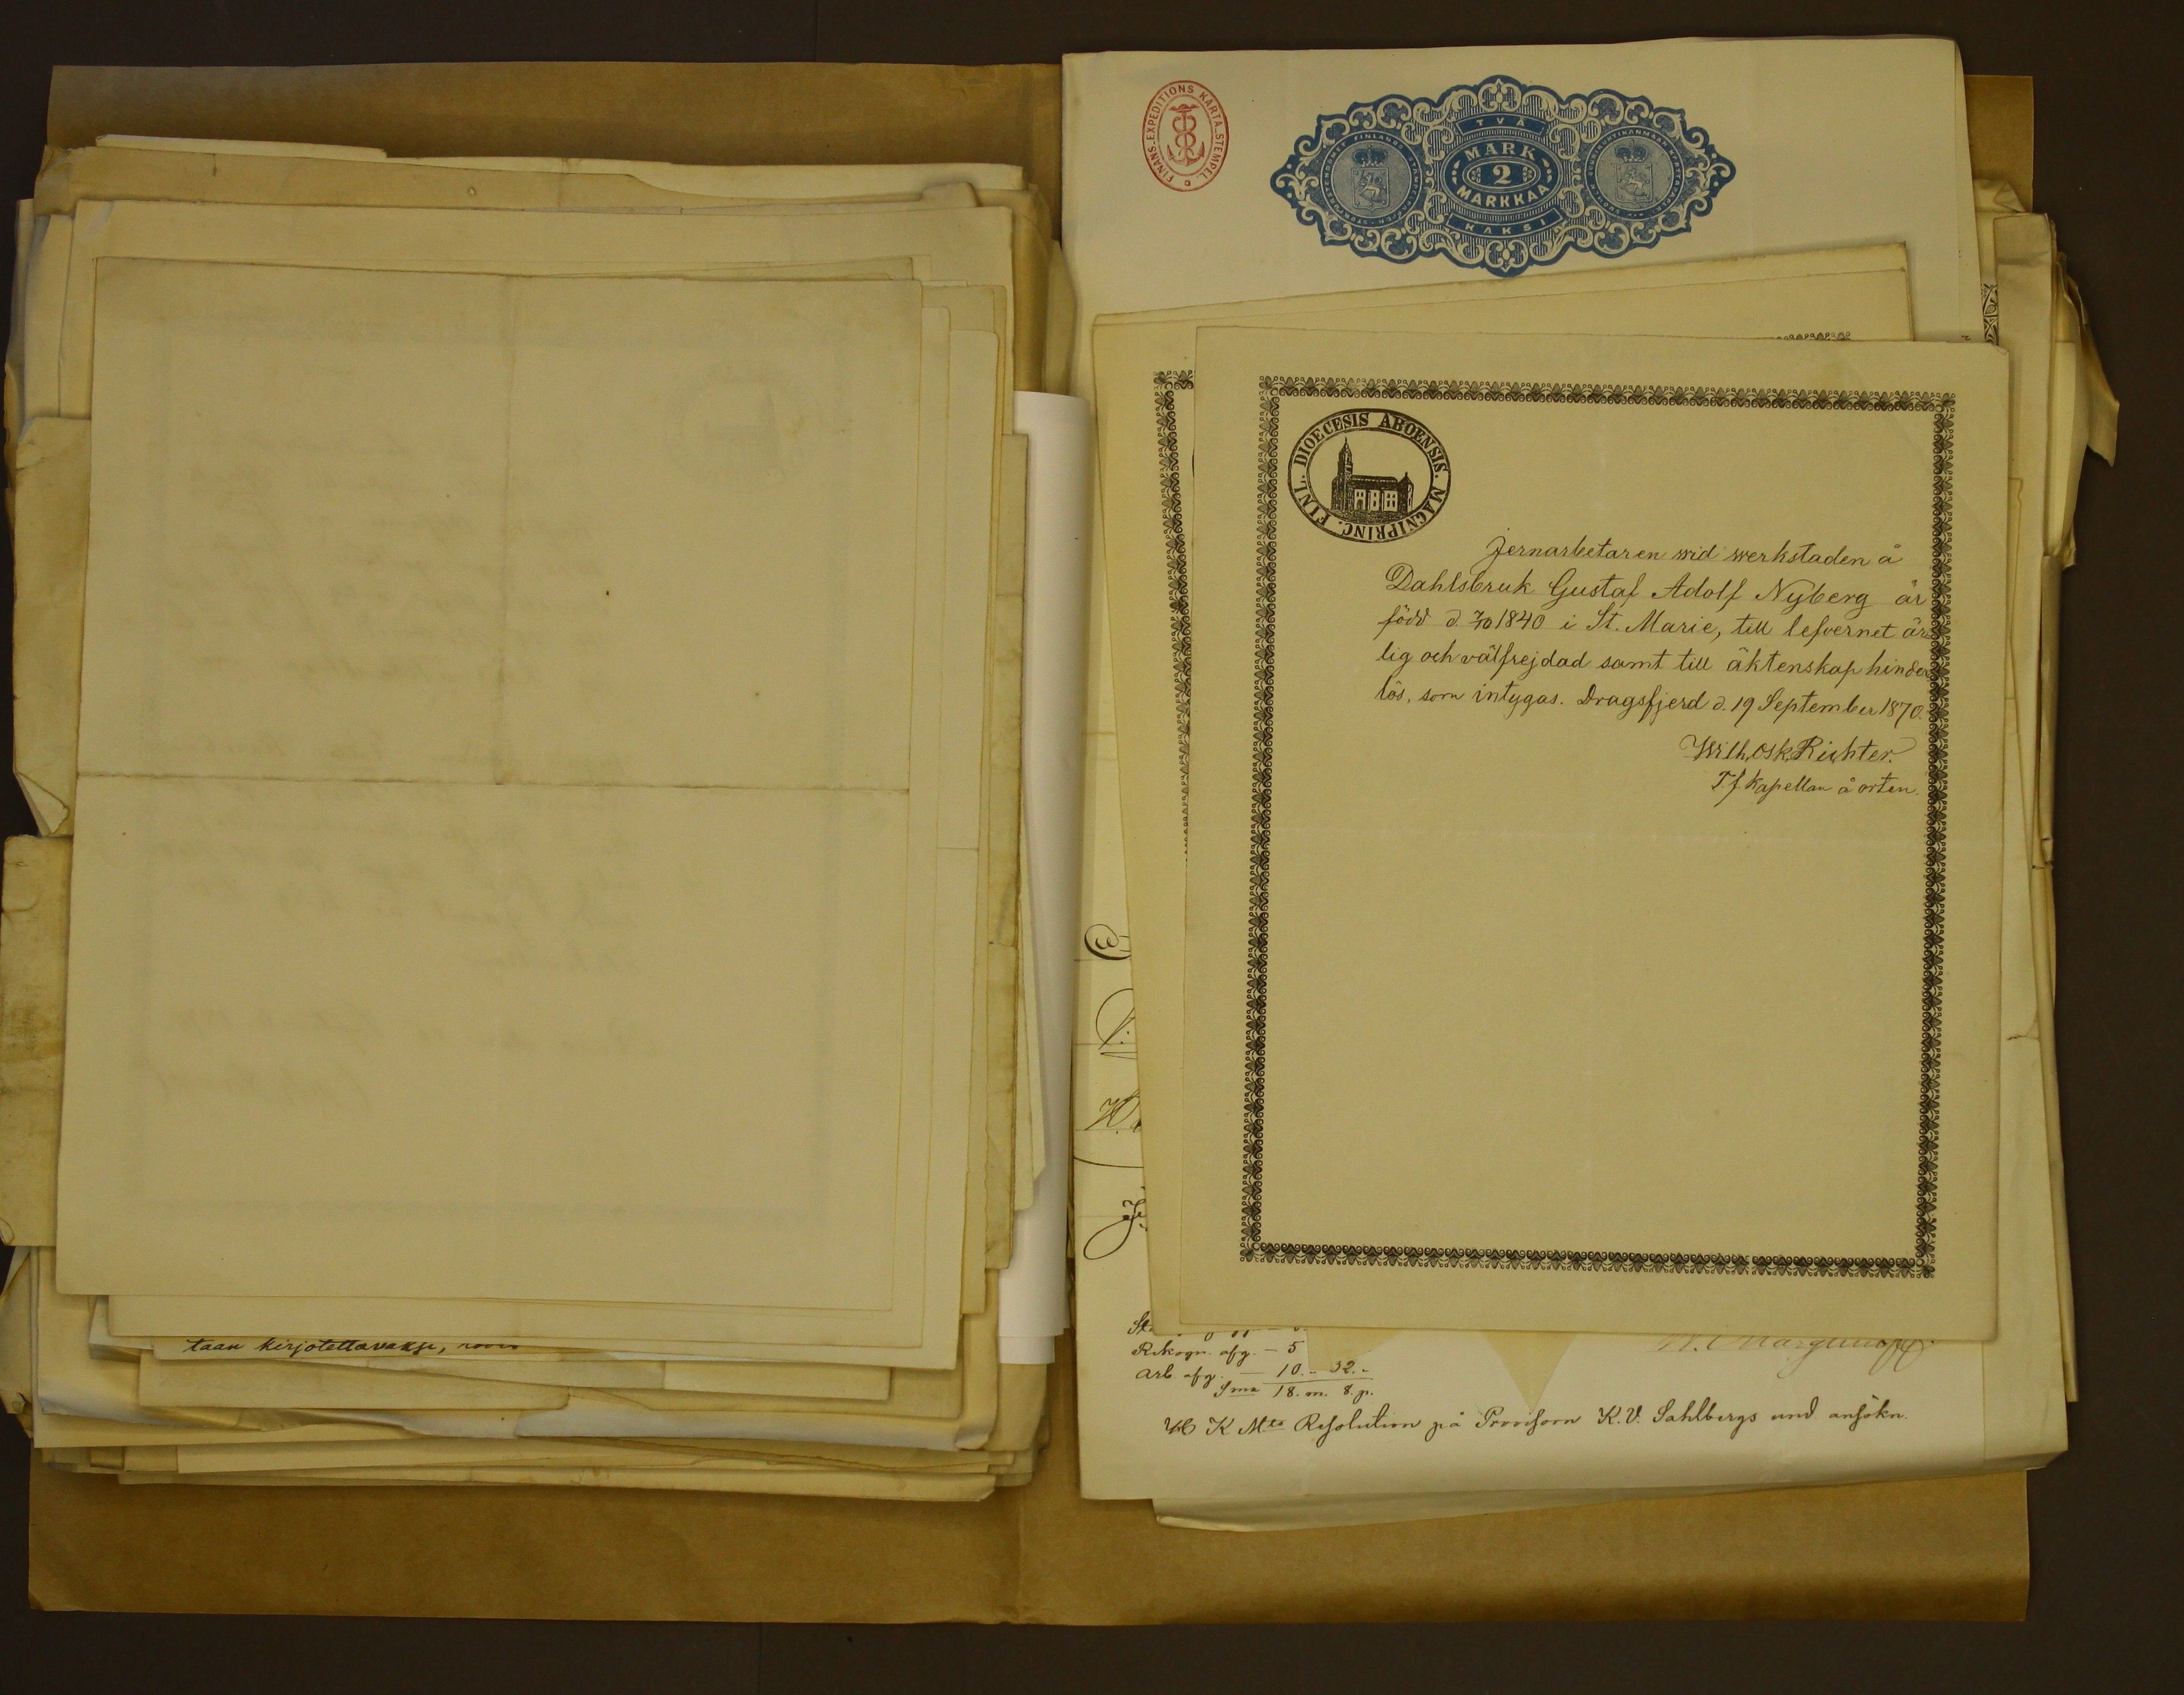 taan kirjotettavaksi,
FINANS-EXPEDITIONS KARTA-STEMPEL.
TVÅ
MARK
2
MARKKAA
KAKSI
DIOECESIS ABOENSIS. MAGNIPRINC. FINL.
Jernarbetaren wid werkstaden å
Dahlsbruk Gustaf Adolf Nyberg är
född d. 7/10 1840 i St. Marie, till lefvernet är
lig och välfrejdad samt till äktenskap hinder
lös, som intygas. Dragsfjerd d. 19 September 1870.
Wilh. Osk. Richter.
T. f. Kapellan å orten.
Rekogn. afg. — 5
Arb. afg. — 10. - 32. -
Sma 18. m. 8. p.
K Mts Resolution på Provisorn K. V. Sahlbergs und ansökn.